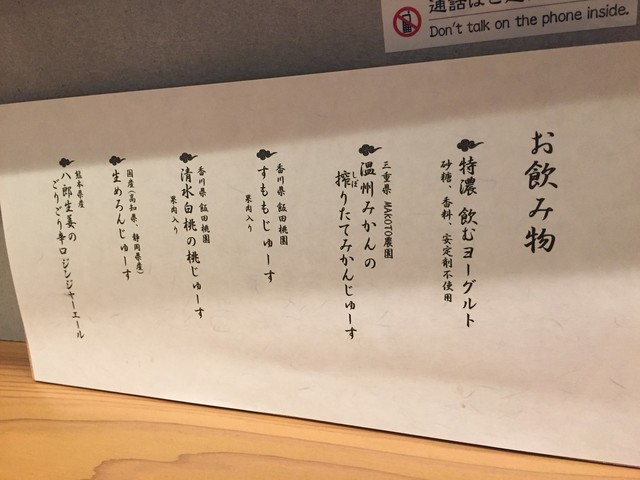 Don't talk on the phone inside.
お飲み物
特濃 飲むヨーグルト
砂糖、香料、安定剤不使用
三重県 MAKOTO農園
温州みかんの
搾りたてみかんじゅーす
しぼ
香川県 飯田桃園
すももじゅーす
果肉入り
香川県 飯田桃園
清水白桃の桃じゅーす
果肉入り
国産(高知県、静岡県産)
生めろんじゅーす
熊本県産
八郎生姜の
どりどり辛口ジンジャーエール